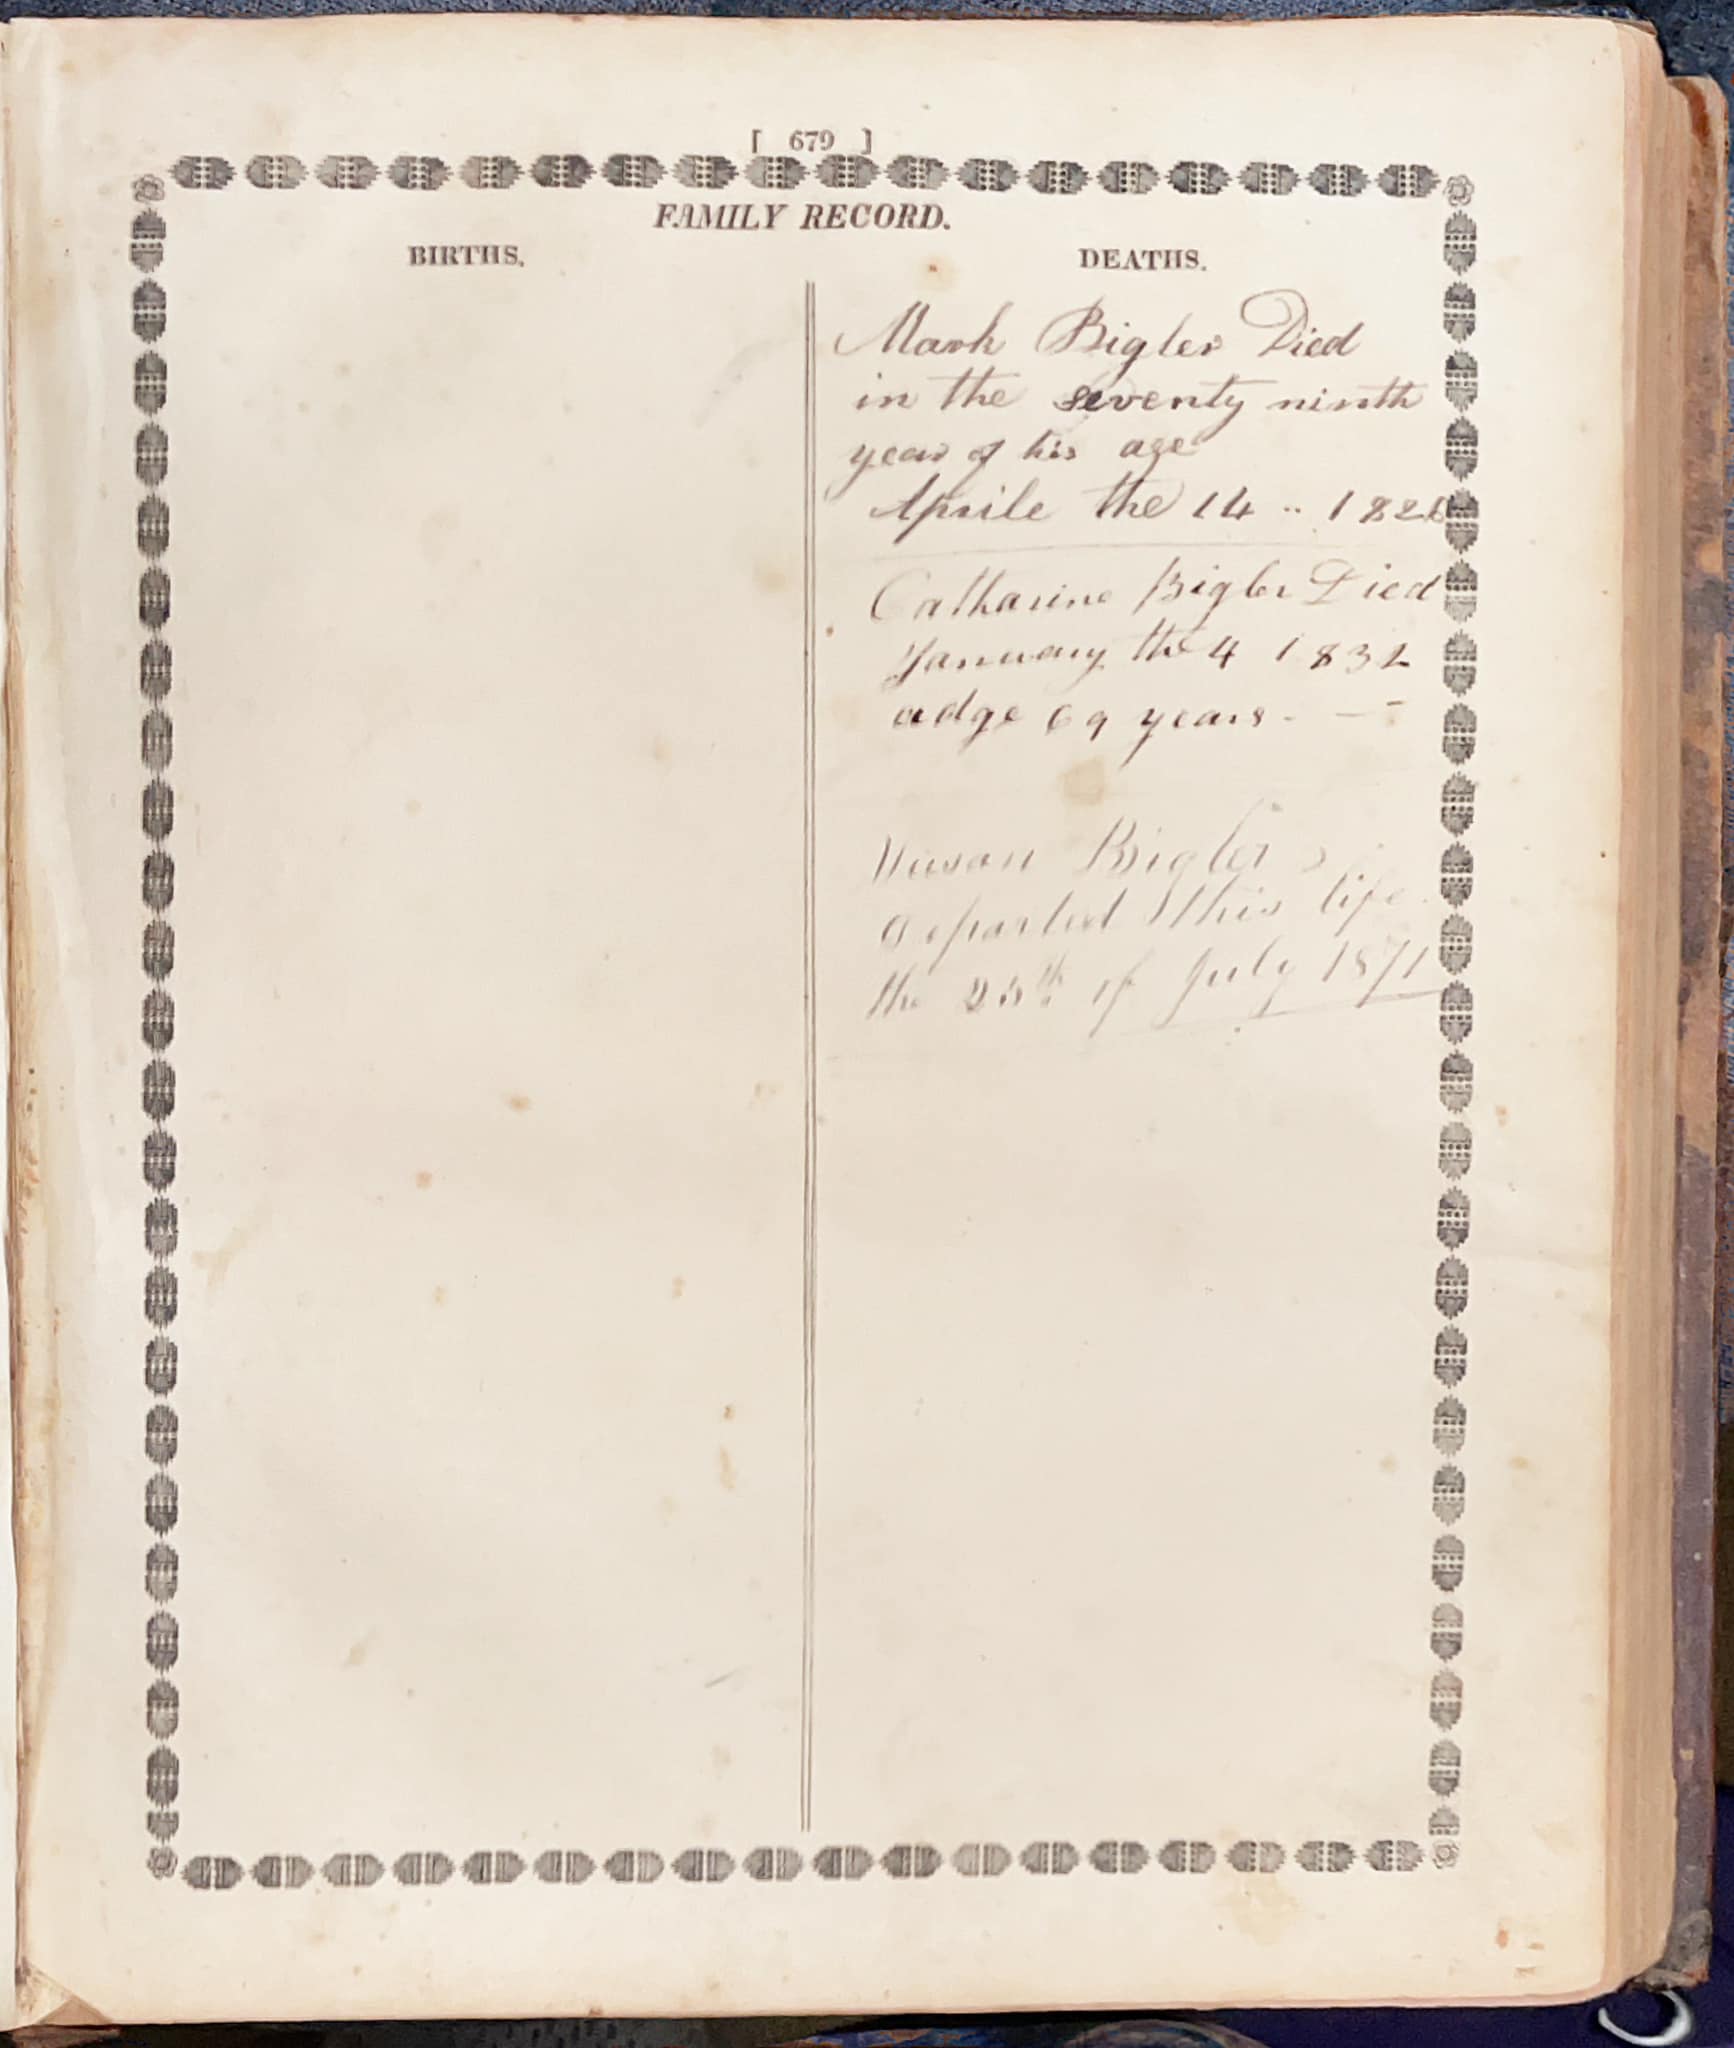 [ 679 ]
FAMILY RECORD.
BIRTHS.
DEATHS.
Mark Bigler Died
in the seventy ninth
year of his age
Aprile the 14 .. 182
Catharine Bigler Died
January the 4 1832
adge 69 years - — -
Susan Bigler
departed this life
the th of July 1871